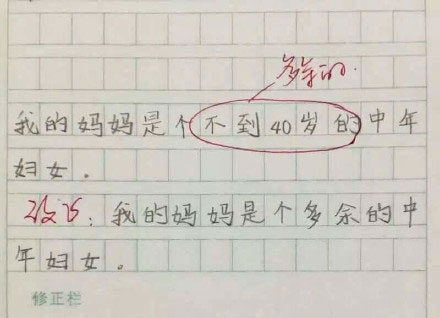 多余的.
我的妈妈是个不到40岁的中年
妇女。
改正:我的妈妈是个多余的中
年妇女。
修正栏